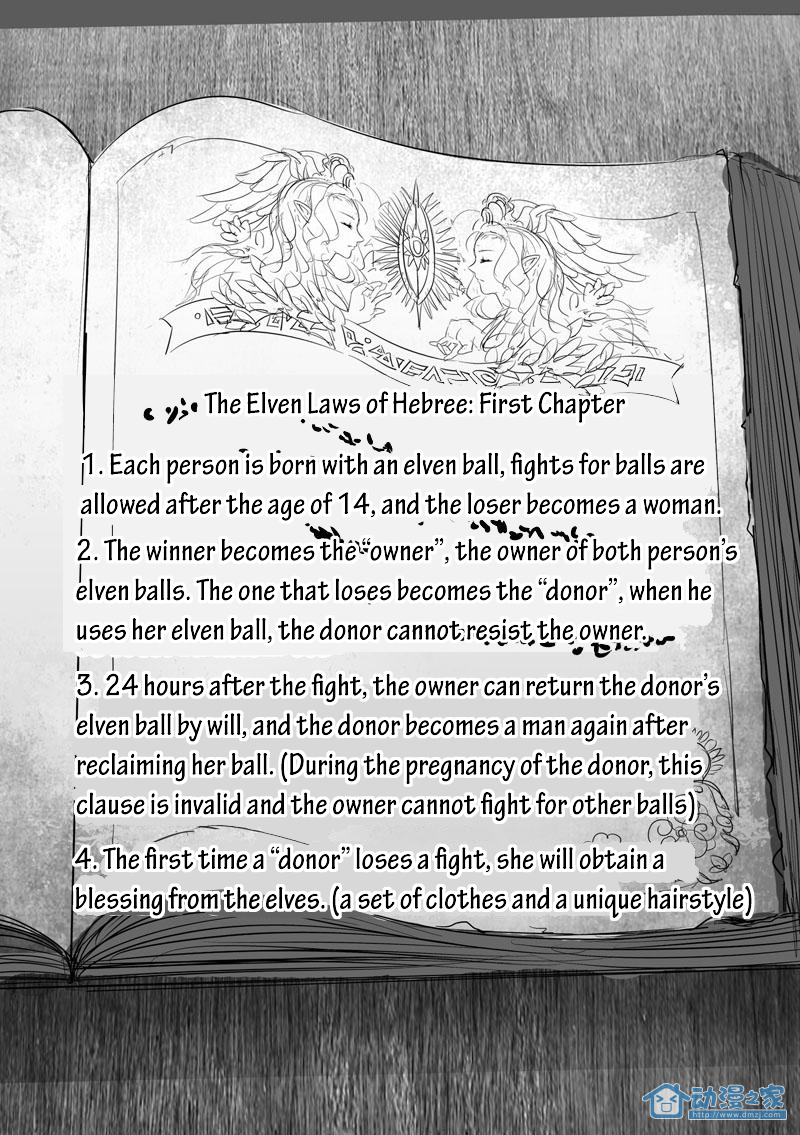 The Elven Laws of Hebree: First Chapter
1. Each person is born with an elven ball, fights for balls are
allowed after the age of 14, and the loser becomes a woman.
2. The winner becomes the “owner”, the owner of both person’s
elven balls. The one that loses becomes the “donor”, when he
uses her elven ball, the donor cannot resist the owner.
3. 24 hours after the fight, the owner can return the donor’s
elven ball by will, and the donor becomes a man again after
reclaiming her ball. (During the pregnancy of the donor, this
clause is invalid and the owner cannot fight for other balls)
4. The first time a “donor” loses a fight, she will obtain a
blessing from the elves. (a set of clothes and a unique hairstyle)
动漫之家
http://www.dmzj.com